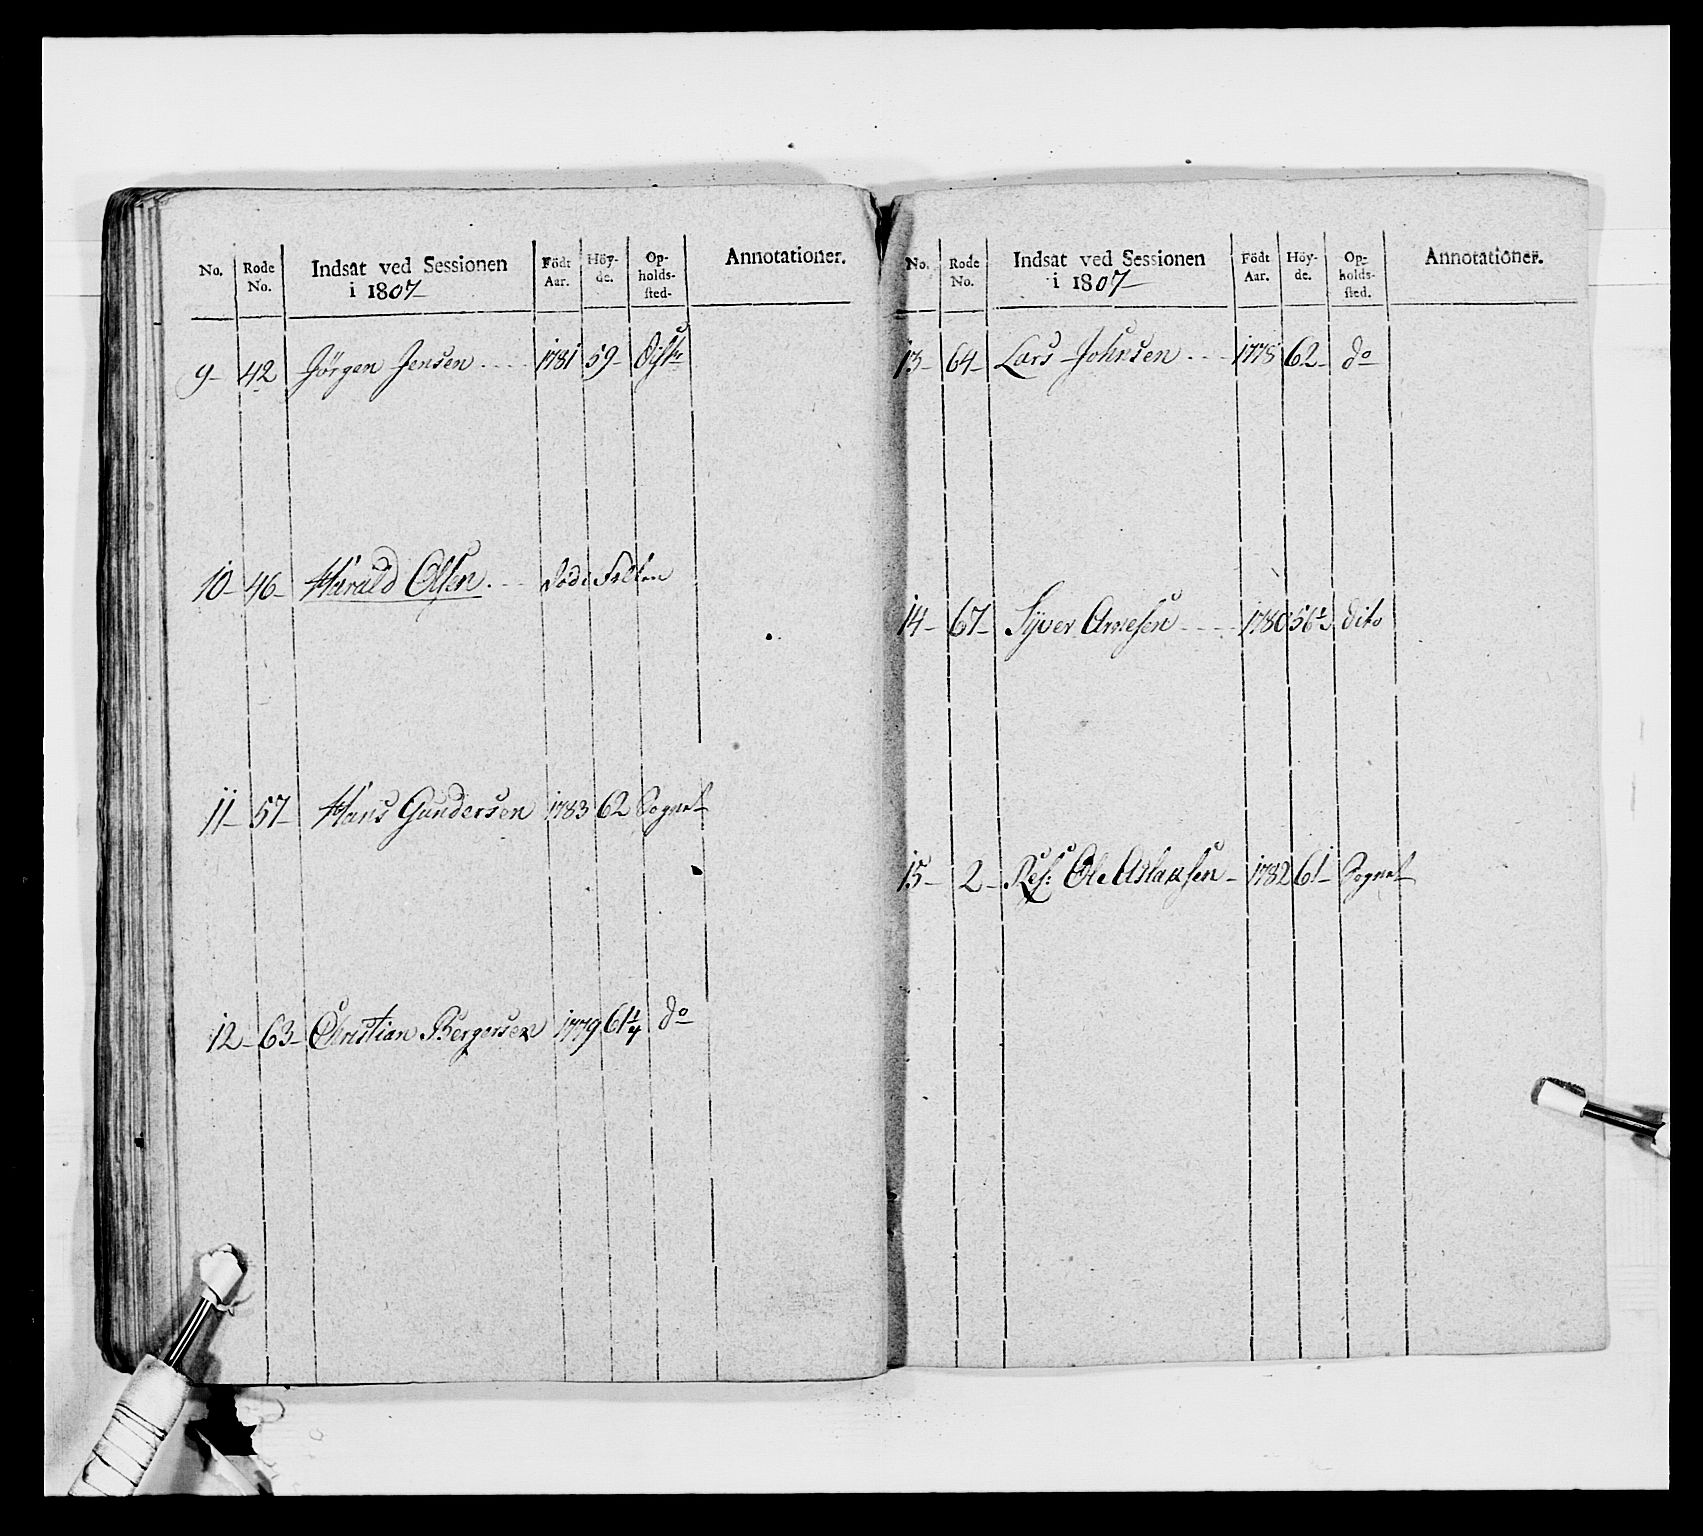 No. Rode No. Indsat ved Sessionen i 1807 Födt Aar. Höy-de. Op-holds-sted- Annotationer.
9- 42 Jörgen Jensen.... 1781 59-
10- 46- Harald Olsen.--
11- 57- Hans Gundersen 1783 62 Sognet
12- 63- Christian Bergersen 1779 61¼ do
No. Rode No. Indsat ved Sessionen i 1807 Födt Aar. Höy-de. Op-holds-sted. Annotationer.
13- 64- Lars Johnsen.... 1778 62- do
14- 67- Syver Arnesen---- 1780 56½ dito
15- 2- Res: Ole Aslaksen- 1782 61- Sognet